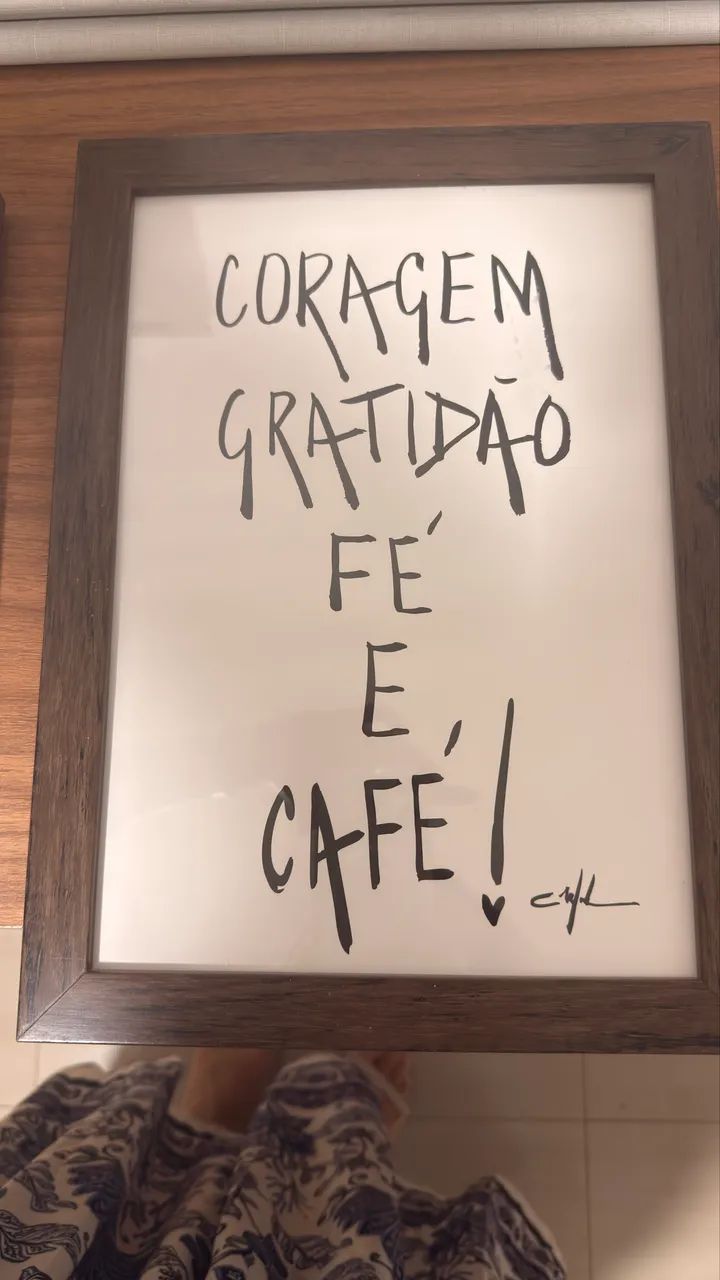 CORAGEM
GRATIDÃO
FÉ
E
CAFÉ!